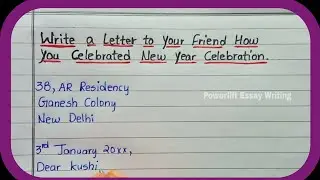 Write a Letter to Your Friend How
You Celebrated New Year Celebration.
38, AR Residency
Ganesh Colony
New Delhi
Powerlift Essay Writing
3rd January 20xx,
Dear kushi